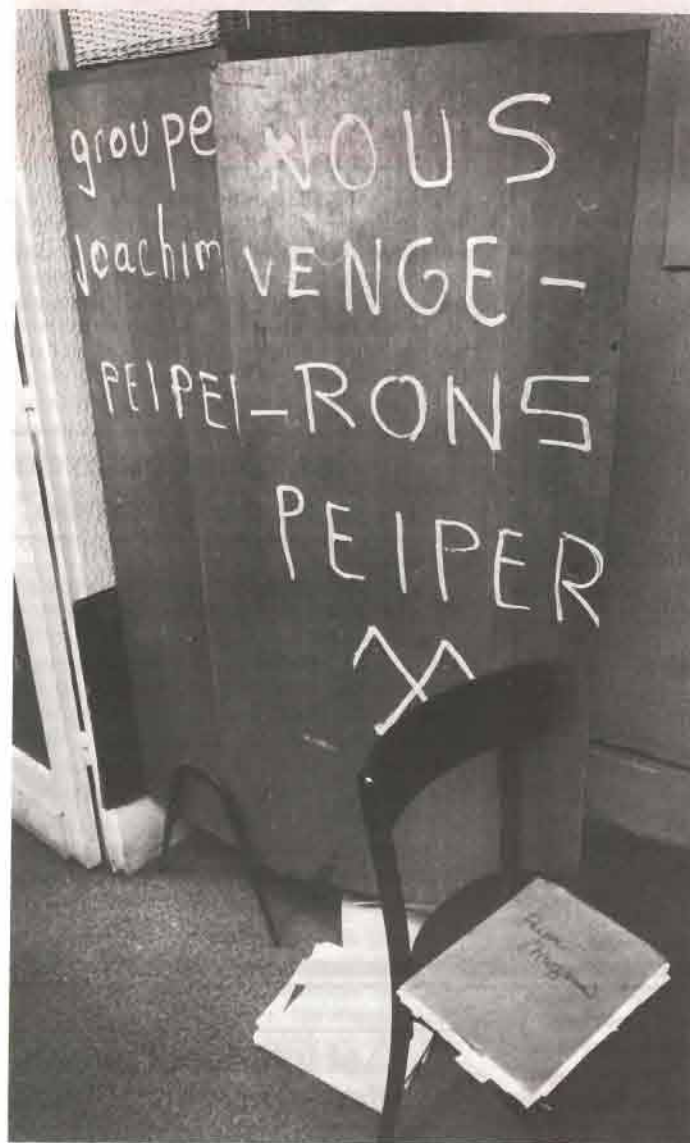 groupe
Joachim
PEIPEI
NOUS
VENGE-
-RONS
PEIPER